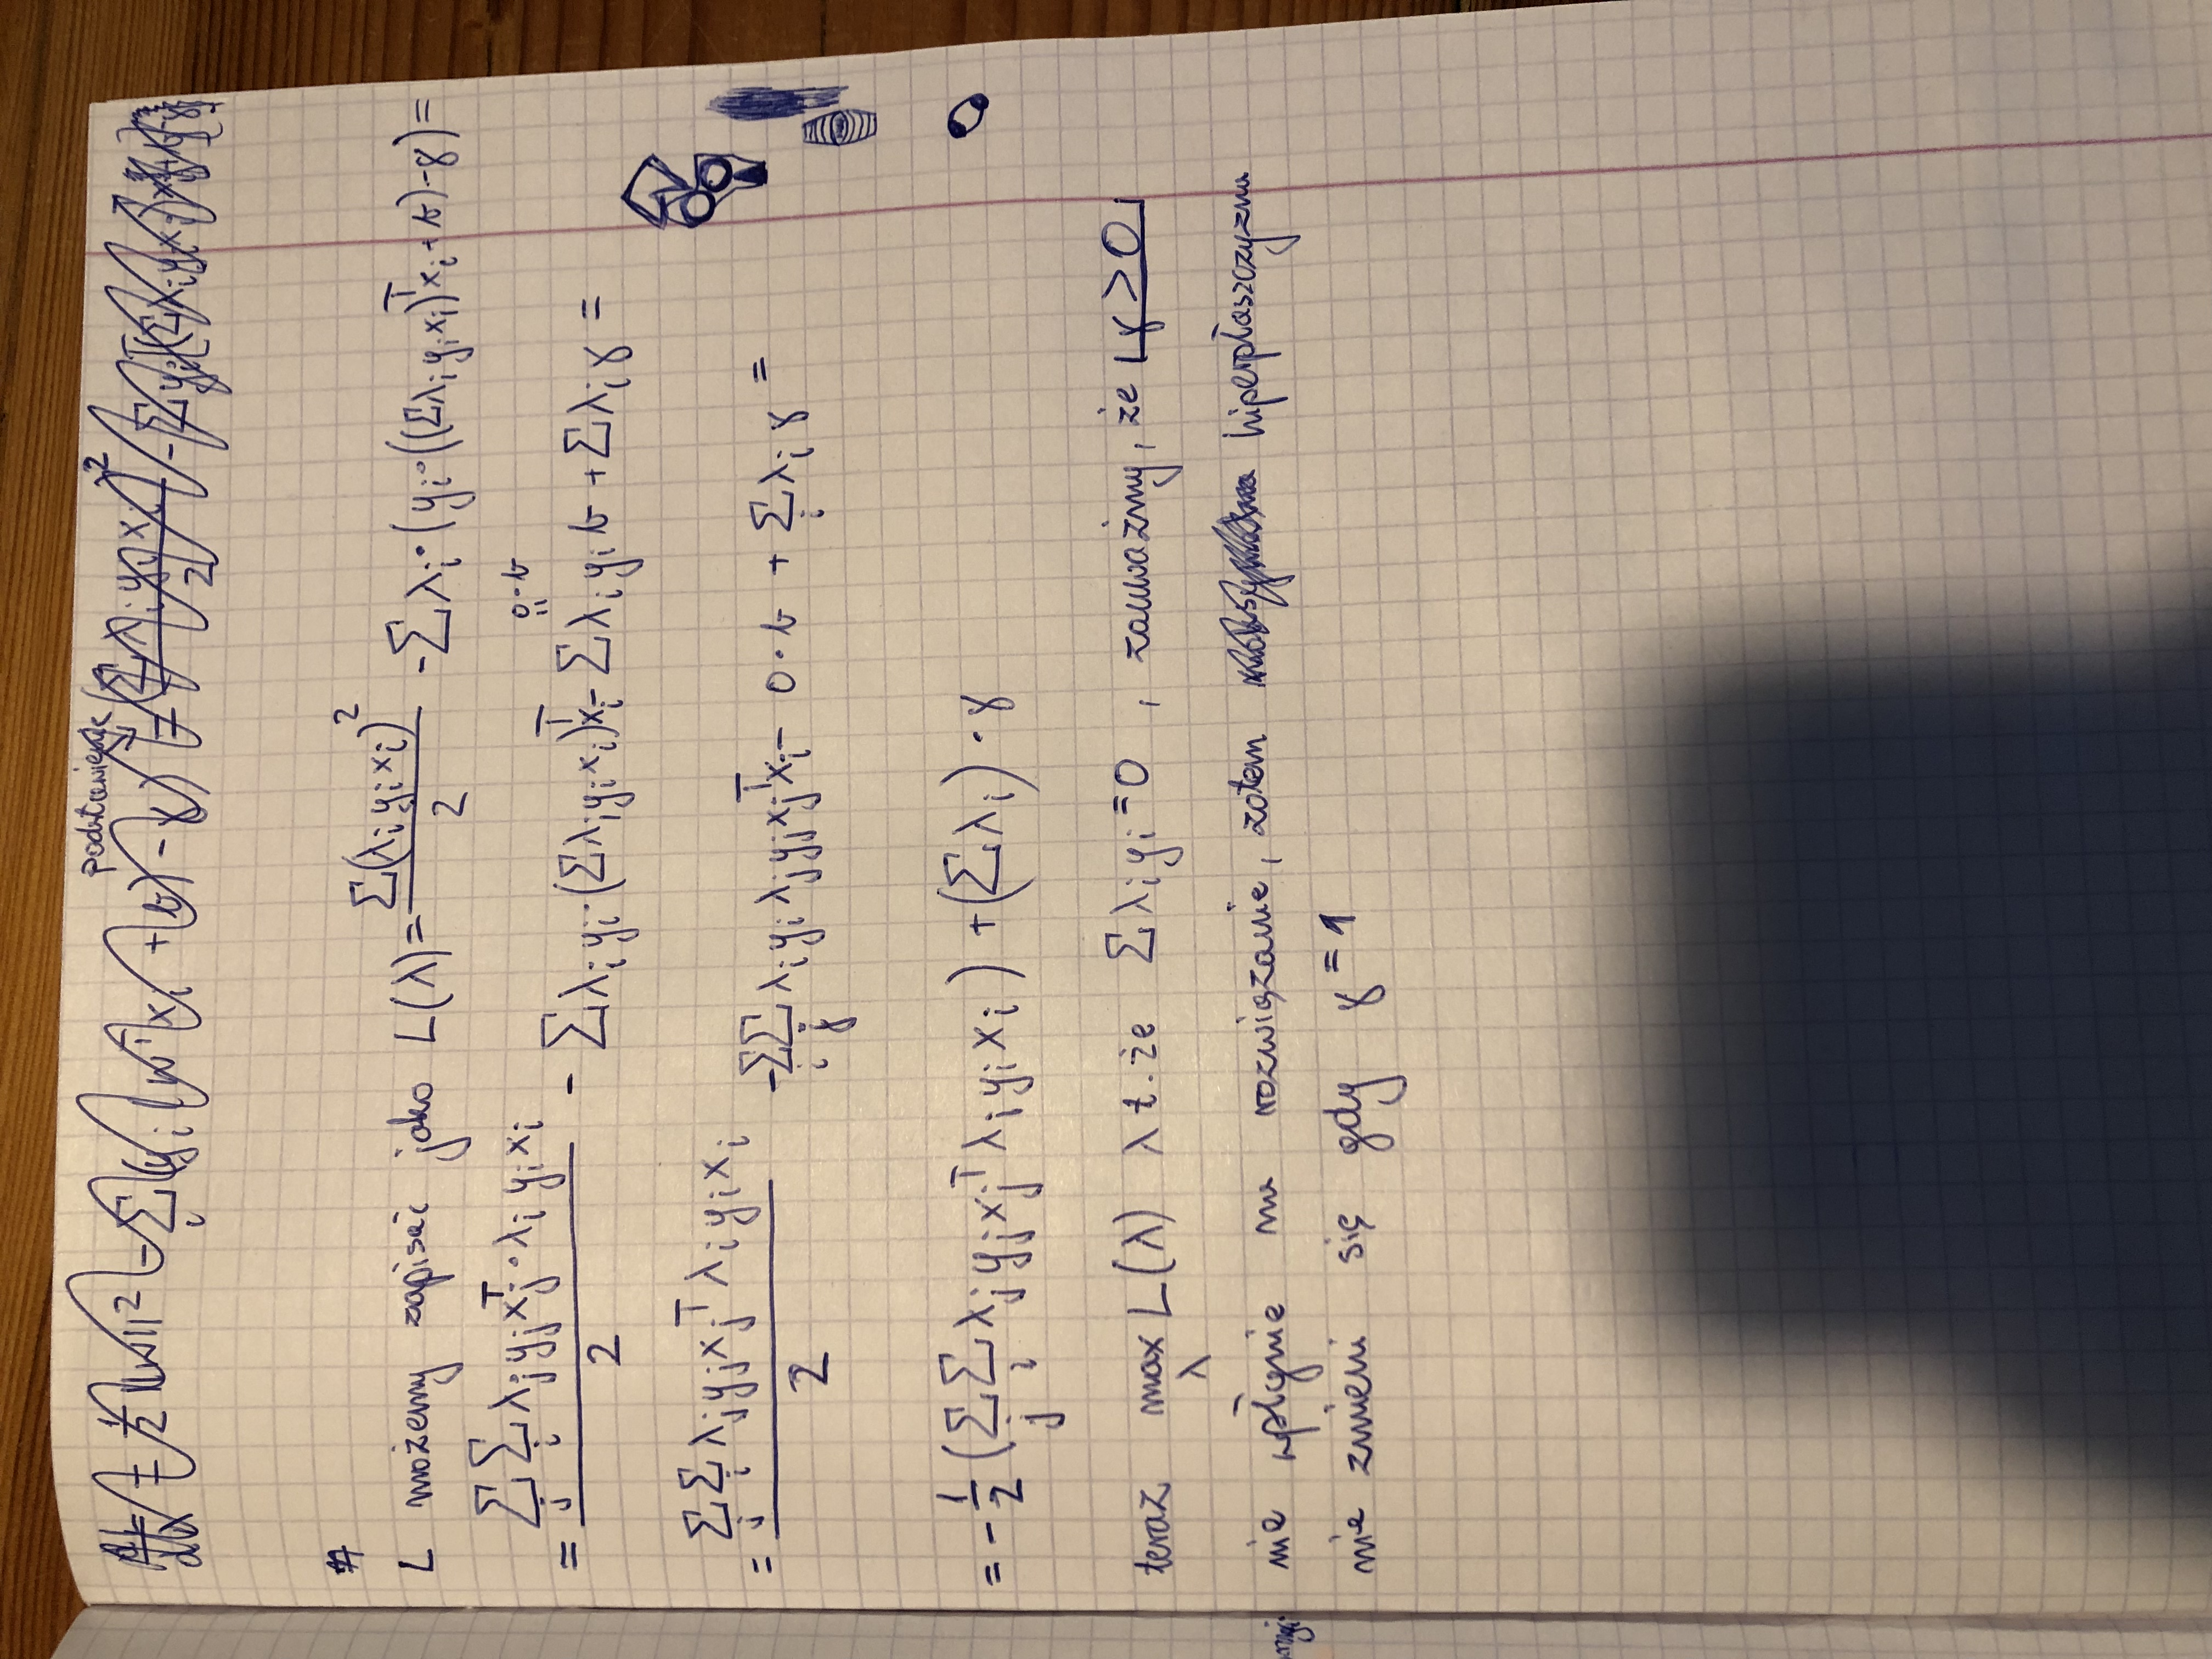 podstawienie
L możemy zapisać jako L(λ) = Σ(λᵢ yᵢ xᵢ)² / 2 - Σ λᵢ · (yᵢ · ((Σ λᵢ yᵢ xᵢ)ᵀ xᵢ + b) - γ) =
= Σⱼ Σᵢ λⱼ yⱼ xⱼᵀ · λᵢ yᵢ xᵢ / 2 - Σ λᵢ yᵢ · (Σ λᵢ yᵢ xᵢ)ᵀ xᵢ - Σ λᵢ yᵢ b + Σ λᵢ γ =
0 · b
= Σⱼ Σᵢ λⱼ yⱼ xⱼᵀ λᵢ yᵢ xᵢ / 2 - Σᵢ Σⱼ λᵢ yᵢ λⱼ yⱼ xⱼᵀ xᵢ - 0 · b + Σᵢ λᵢ γ =
= - 1/2 (Σⱼ Σᵢ λⱼ yⱼ xⱼᵀ λᵢ yᵢ xᵢ) + (Σ λᵢ) · γ
teraz max L(λ) λ t. że Σ λᵢ yᵢ = 0 , zauważmy, że γ > 0
λ
nie wpłynie na rozwiązanie, zatem hiperpłaszczyzna
nie zmieni się gdy γ = 1